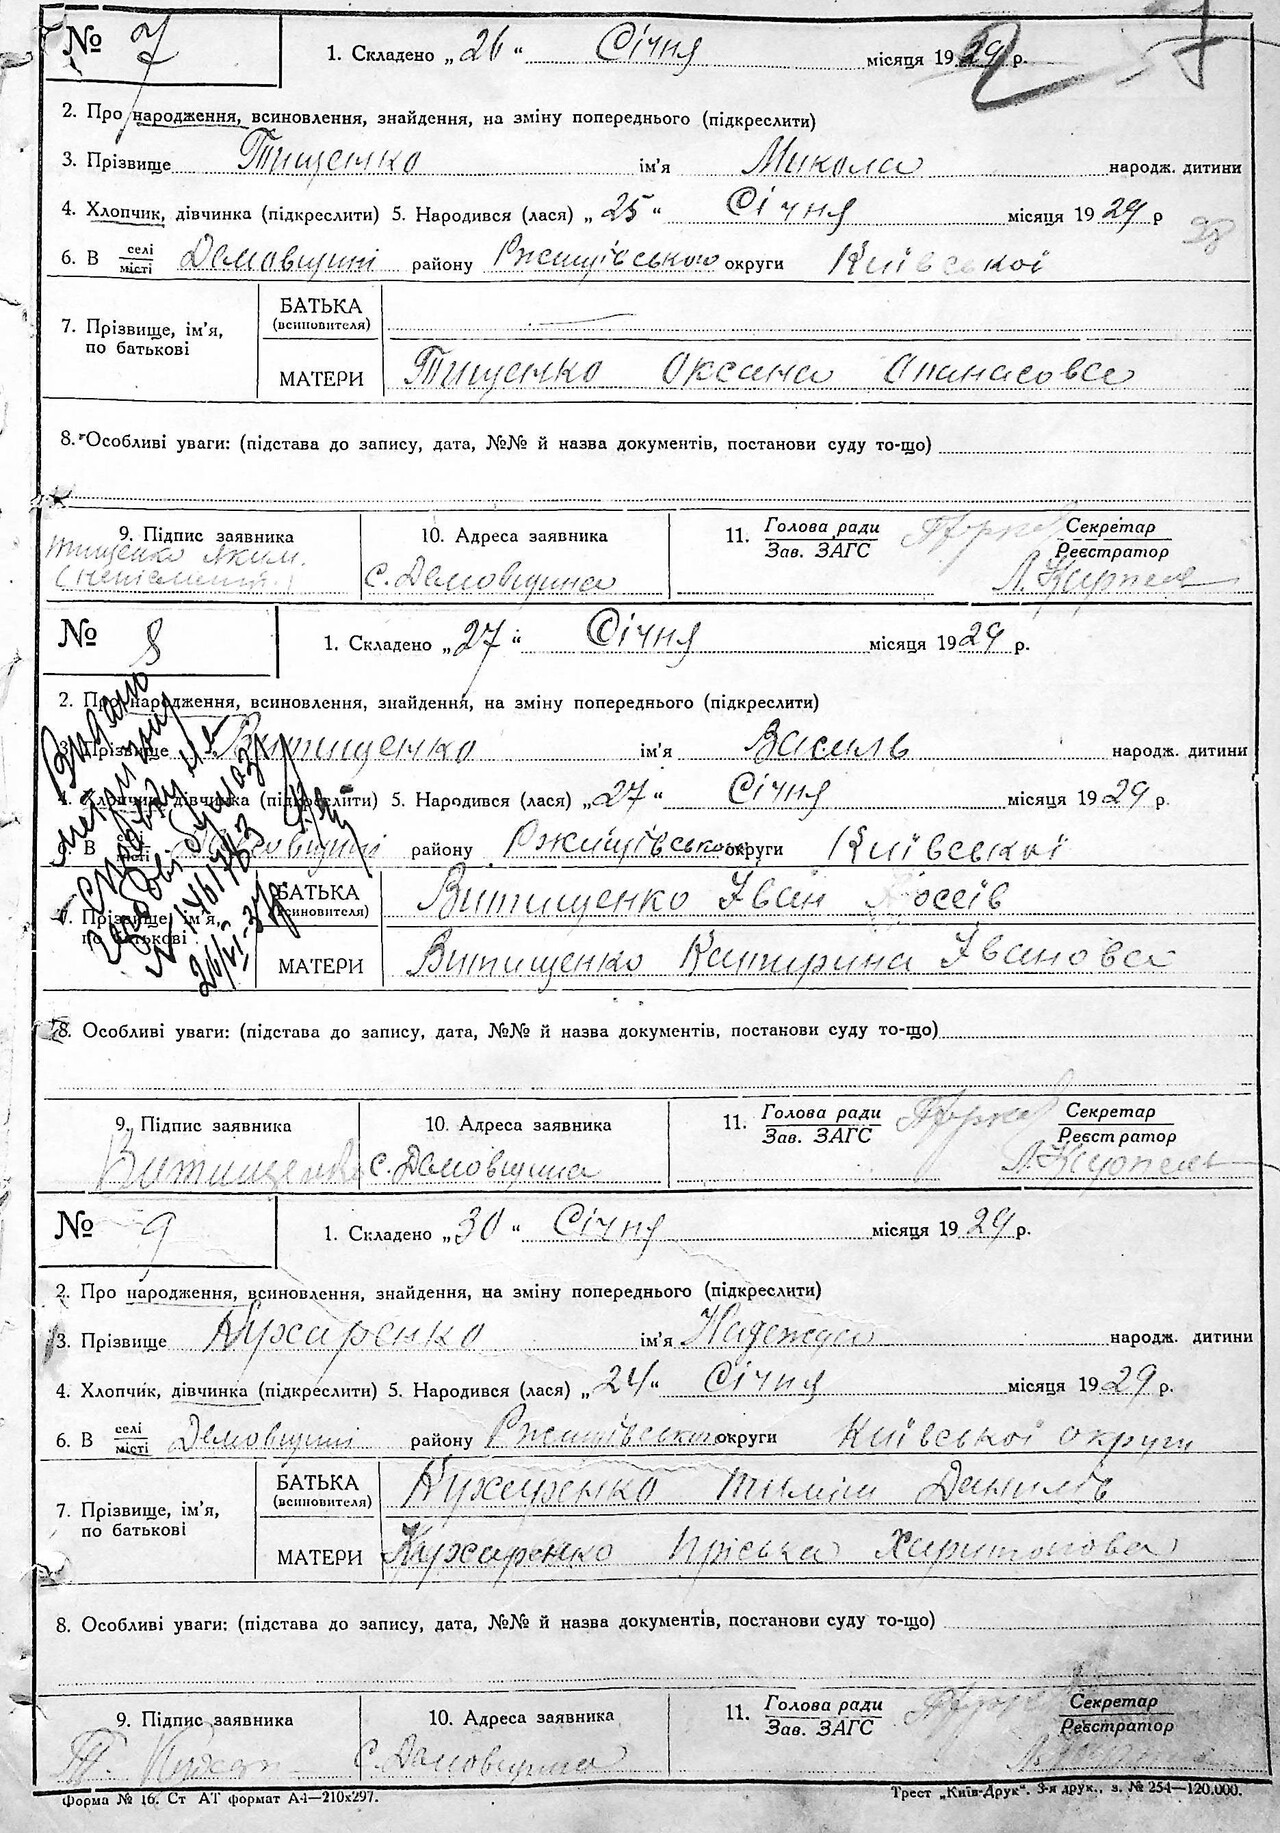 № 7 1. Складено „26“ Січня місяця 1929 р.
2. Про народження, всиновлення, знайдення, на зміну попереднього (підкреслити)
3. Прізвище Тищенко ім'я Микола народж. дитини
4. Хлопчик, дівчинка (підкреслити) 5. Народився (лася) „25“ Січня місяця 1929 р
28
6. В селі місті Демовщині району Ржищівського округи Київської
7. Прізвище, ім'я, по батькові
БАТЬКА (всиновителя) —
МАТЕРИ Тищенко Оксана Опанасовва
8. Особливі уваги: (підстава до запису, дата, №№ й назва документів, постанови суду то-що)
9. Підпис заявника 10. Адреса заявника 11. Голова ради Зав. ЗАГС Секретар Реєстратор
Тищенко Яким.
с. Демовщина
№ 8 1. Складено „27“ Січня місяця 1929 р.
2. Про народження, всиновлення, знайдення, на зміну попереднього (підкреслити)
3. Прізвище Витищенко ім'я Василь народж. дитини
4. Хлопчик, дівчинка (підкреслити) 5. Народився (лася) „27“ Січня місяця 1929 р.
6. В селі місті Демовщині району Ржищівського округи Київської
7. Прізвище, ім'я, по батькові
БАТЬКА (всиновителя) Витищенко Іван
МАТЕРИ Витищенко Катирина Івановва
Видано
метричну
справку на
гербові бумазі
№ 1461783
26/VI-37
8. Особливі уваги: (підстава до запису, дата, №№ й назва документів, постанови суду то-що)
9. Підпис заявника 10. Адреса заявника 11. Голова ради Зав. ЗАГС Секретар Реєстратор
Витищенко с. Демовщина
№ 9 1. Складено „30“ Січня місяця 1929 р.
2. Про народження, всиновлення, знайдення, на зміну попереднього (підкреслити)
3. Прізвище Кухаренко ім'я Надежда народж. дитини
4. Хлопчик, дівчинка (підкреслити) 5. Народився (лася) „24“ Січня місяця 1929 р.
6. В селі місті Демовщині району Ржищівського округи Київської округи
7. Прізвище, ім'я, по батькові
БАТЬКА (всиновителя) Кухаренко Тиміш Данилів
МАТЕРИ Кухаренко Пріська Харитонова
8. Особливі уваги: (підстава до запису, дата, №№ й назва документів, постанови суду то-що)
9. Підпис заявника 10. Адреса заявника 11. Голова ради Зав. ЗАГС Секретар Реєстратор
с. Демовщина
Форма № 16. Ст АТ формат А4—210х297. Трест „Київ-Друк“. 3-я друк., з. № 254—120.000.